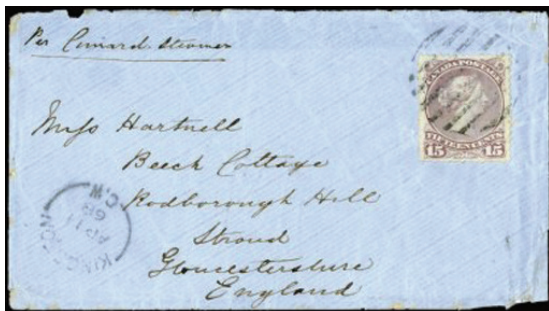 Per Cunard Steamer
CANADA POSTAGE
FIFTEEN CENTS
15 15
Miss Hartnell
Beech Cottage
Rodborough Hill
Stroud
Gloucestershire
England
KINGSTON
C.W
AP 14
68